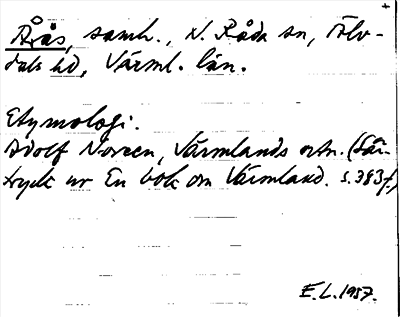 Årås, samh., N. Råda sn, Älv-
dals hd, Värml. län.
Etymologi.
Adolf Noreen, Värmlands ortn. (Sär-
tryck ur En bok om Värmland. s. 383 f.)
E.L. 1957.